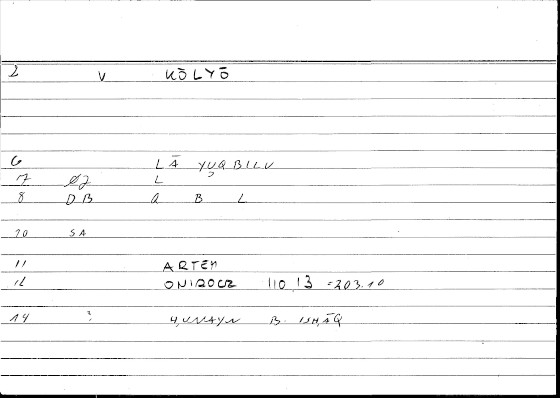 2 V KŌLYŌ
6 LĀ YUQBILU
7 ØJ L
8 DB Q B L
10 SA
11 ARTEM
12 ONIROCR 110,13 = 203.10
14 ? ḤUNAYN B. ISḤĀQ